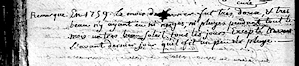 Remarque. En 1759. Le mois de janvier fut très doux, et très
beau n'y ayant eu ni neiges, ni pluyes pendant tout le
mois un très beau soleil tous les jours. Excepté
l'avant dernier jour qu'il fit un peu de pluye.